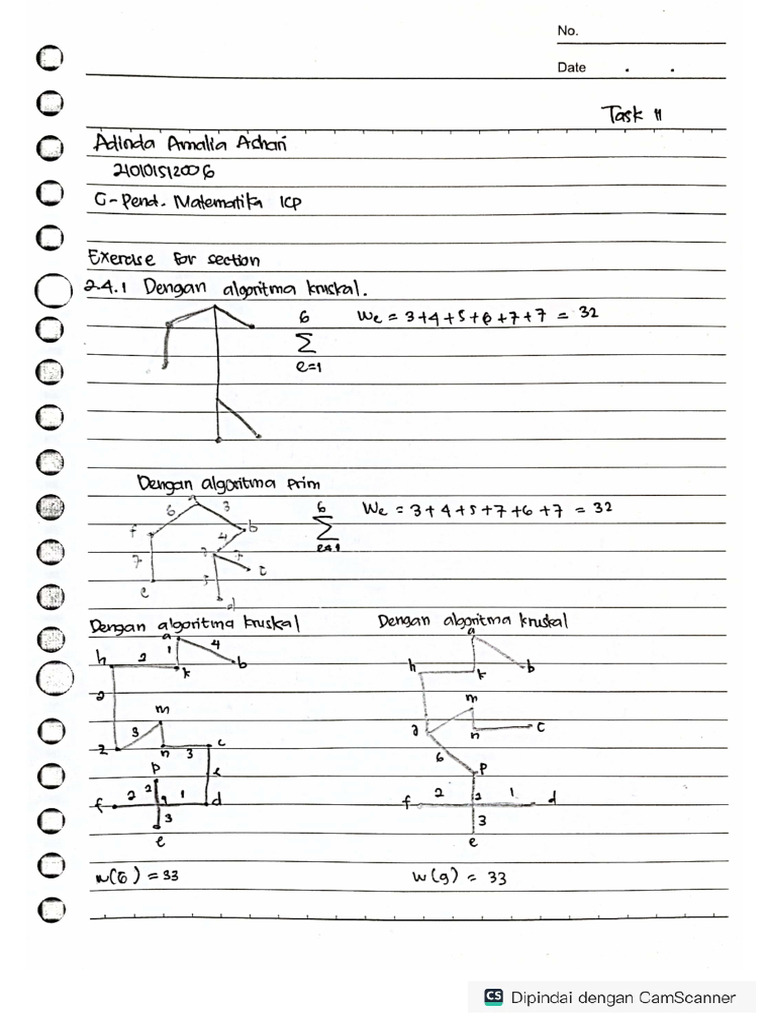 No.
Date . .
Task 11
Adinda Amalia Azhari
210101512006
G-Pend. Matematika ICP
Exercise for section
2.4.1 Dengan algoritma kruskal.
6
We = 3+4+5+6+7+7 = 32
Σ
e=1
Dengan algoritma Prim
a
6 3
f b
4
7 7
c
5
e d
6
Σ
e=1
We = 3+4+5+7+6+7 = 32
Dengan algoritma kruskal
a
h 2 1 4
k b
2
m
3
n 3 c
p
f 2 2 1 d
3
e
w(G) = 33
Dengan algoritma kruskal
a
h k b
m
g n c
6 p
f 2 2 1 d
3
e
w(g) = 33
CS Dipindai dengan CamScanner